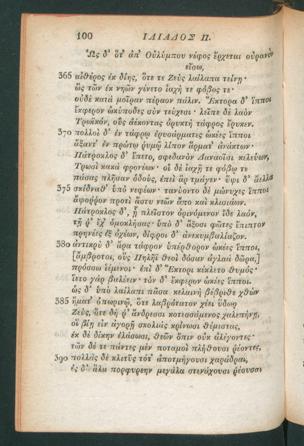 100 ΙΛΙΑΔΟΣ Π.
Ὡς δ' ὅτ' ἀπ' Οὐλύμπου νέφος ἔρχεται οὐρανὸν
εἴσω,
365 αἰθέρος ἐκ δίης, ὅτε τε Ζεὺς λαίλαπα τείνῃ·
ὣς τῶν ἐκ νηῶν γένετο ἰαχή τε φόβος τε·
οὐδὲ κατὰ μοῖραν πέραον πάλιν. Ἕκτορα δ' ἵπποι
ἔκφερον ὠκύποδες σὺν τεύχεσι· λεῖπε δὲ λαὸν
Τρωϊκὸν, οὓς ἀέκοντας ὀρυκτὴ τάφρος ἔρυκεν.
370 πολλοὶ δ' ἐν τάφρῳ ἐρυσάρματες ὠκέες ἵπποι
ἄξαντ' ἐν πρώτῳ ῥυμῷ λίπον ἅρματ' ἀνάκτων·
Πάτροκλος δ' ἕπετο, σφεδανὸν Δαναοῖσι κελεύων,
Τρωσὶ κακὰ φρονέων· οἱ δὲ ἰαχῇ τε φόβῳ τε
πάσας πλῆσαν ὁδοὺς, ἐπεὶ ἂρ τμάγεν· ὕψι δ' ἄελλα
375 σκίδναθ' ὑπὸ νεφέων· τανύοντο δὲ μώνυχες ἵπποι
ἄψοῤῥον προτὶ ἄστυ νεῶν ἄπο καὶ κλισιάων.
Πάτροκλος δ', ᾗ πλεῖστον ὀρινόμενον ἴδε λαὸν,
τῇ ῥ' ἔχ' ὁμοκλήσας· ὑπὸ δ' ἄξοσι φῶτες ἔπιπτον
πρηνέες ἐξ ὀχέων, δίφροι δ' ἀνεκυμβαλίαζον.
380 ἀντικρὺ δ' ἄρα τάφρον ὑπέρθορον ὠκέες ἵπποι,
[ἄμβροτοι, οὓς Πηλῆϊ θεοὶ δόσαν ἀγλαὰ δῶρα,]
πρόσσω ἱέμενοι· ἐπὶ δ' Ἕκτορι κέκλετο θυμός·
ἵετο γὰρ βαλέειν· τὸν δ' ἔκφερον ὠκέες ἵπποι.
ὡς δ' ὑπὸ λαίλαπι πᾶσα κελαινὴ βέβριθε χθὼν
385 ἤματ' ὀπωρινῷ, ὅτε λαβρότατον χέει ὕδωρ
Ζεὺς, ὅτε δή ῥ' ἄνδρεσσι κοτεσσάμενος χαλεπήνῃ,
οἳ βίῃ εἰν ἀγορῇ σκολιὰς κρίνωσι θέμιστας,
ἐκ δὲ δίκην ἐλάσωσι, θεῶν ὄπιν οὐκ ἀλέγοντες·
τῶν δέ τε πάντες μὲν ποταμοὶ πλήθουσι ῥέοντες,
390 πολλὰς δὲ κλιτῦς τότ' ἀποτμήγουσι χαράδραι,
ἐς δ' ἅλα πορφυρέην μεγάλα στενάχουσι ῥέουσαι